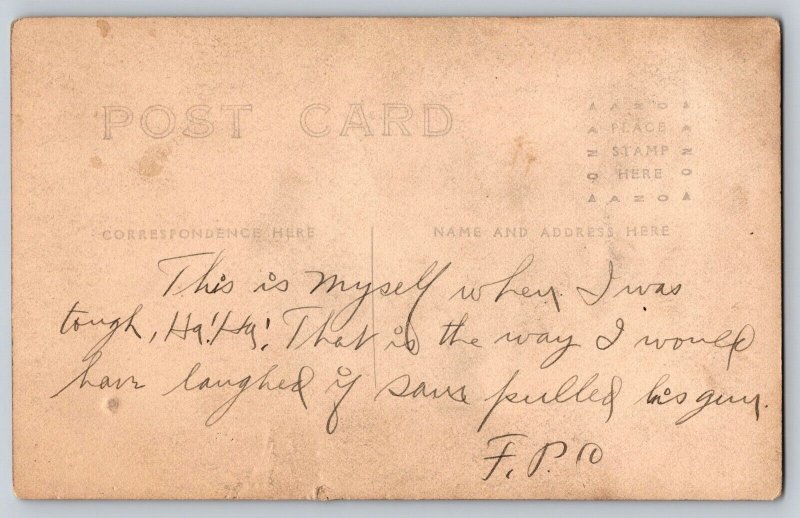 POST CARD
AZO
PLACE
STAMP
HERE
AZO
CORRESPONDENCE HERE
NAME AND ADDRESS HERE
This is myself when I was
tough, Ha! Ha! That is the way I would
have laughed if pulled his gun.
F. P.